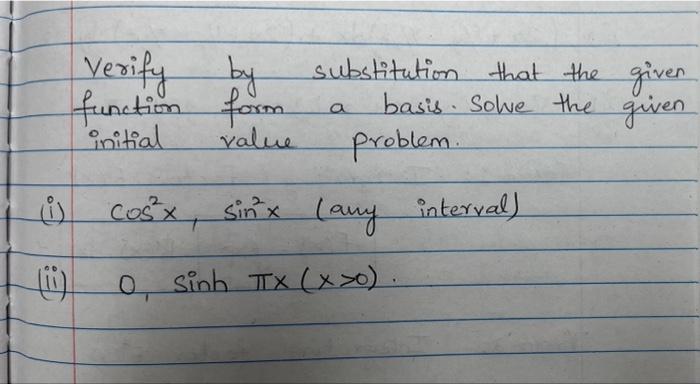 Verify by substitution that the given
function form a basis. Solve the given
initial value problem.
(i) cos²x, sin²x (any interval)
(ii) 0, sinh πx (x>0).